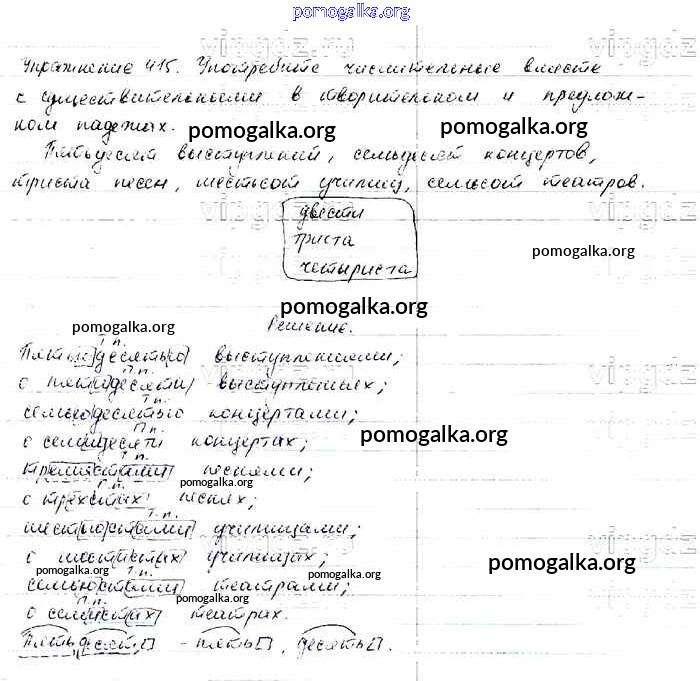 pomogalka.org
Упражнение 415. Употребите числительные вместе
с существительными в творительном и предлож-
ном падежах.
pomogalka.org pomogalka.org
Пятьдесят выступлений, семьдесят концертов,
триста песен, шестьсот училищ, семьсот театров.
двести
триста
четыриста
pomogalka.org
pomogalka.org
Решение.
pomogalka.org
Т.п.
Пятьюдесятью выступлениями;
П.п.
о пятидесяти выступлениях;
Т.п.
семьюдесятью концертами;
П.п.
о семидесяти концертах;
pomogalka.org
Т.п.
тремястами песнями;
pomogalka.org
П.п.
о трёхстах песнях;
Т.п.
шестьюстами училищами;
П.п.
о шестистах училищах;
pomogalka.org
pomogalka.org Т.п. pomogalka.org
семьюстами театрами;
П.п. pomogalka.org
о семистах театрах.
Пятьдесят - пять, десять.